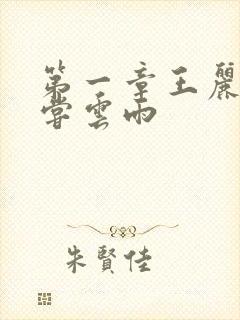 第一章王麗
嘗雲雨
朱賢佳